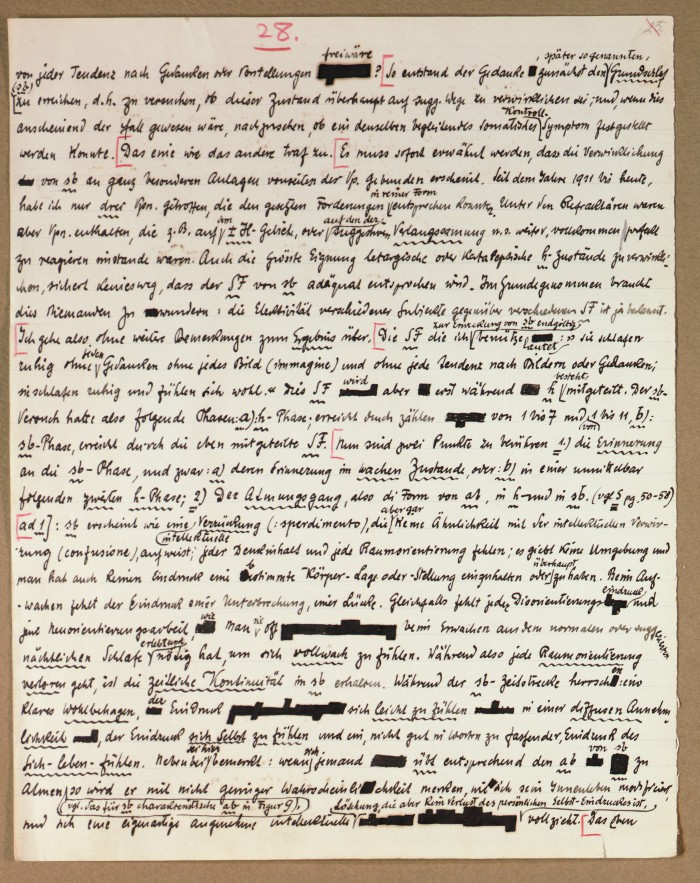 28.
von jeder Tendenz nach Gedanken oder Vorstellungen freiwäre ? [So entstand der Gedanke zunächst den, später sogenannten, Grundschlaf
(sb) zu erreichen, d.h. zu versuchen, ob dieser Zustand überhaupt auf sugg. Wege zu verwirklichen sei; und wenn dies
anscheinend der Fall gewesen wäre, nachzusehen, ob ein denselben begleitendes somatisches Kontroll-Symptom festgestellt
werden konnte. [Das eine wie das andere traf zu. [Es muss sofort erwähnt werden, dass die Verwirklichung
von sb an ganz besonderen Anlagen vonseiten der Vp. gebunden erscheint. Seit dem Jahre 1931 bis heute,
habe ich nur drei Vpn. getroffen, die den gesetzten Forderungen in reiner Form entsprechen konnte. Unter den Refraktären waren
aber Vpn. enthalten, die z.B. auf ± H-Geheiß, oder auf den der suggerierten Verlangsamung u.s. weiter, vollkommen prompt
zu reagieren imstande waren. Auch die grösste Eignung letargische oder kataleptische h-Zustände zu verwirkli-
chen, sichert keineswegs, dass der SF von sb adäquat entsprochen wird. Im Grundegenommen braucht
dies Niemanden zu wundern: die Elektivität verschiedener Subjekte gegenüber verschiedenen SF ist ja bekannt.
[Ich gehe also, ohne weitere Bemerkungen zum Ergebnis über. [Die SF die ich zur Erweckung von sb endgültig benütze lautet: „sie schlafen
ruhig ohne Gedanken ohne jedes Bild (immagine) und ohne jede Tendenz nach Bildern oder Gedanken;
sie schlafen ruhig und fühlen sich wohl.“ Dies SF wird aber erst während h mitgeteilt. Der sb-
Versuch hatte also folgende Phasen: a): h-Phase; erreicht durch zählen von 1 bis 7 und von 1 bis 11, b):
sb-Phase, erreicht durch die eben mitgeteilte SF. [Nun sind zwei Punkte zu berühren 1.) die Erinnerung
an die sb-Phase, und zwar: a) deren Erinnerung im wachen Zustande, oder: b) in einer unmittelbar
folgenden zweiten h-Phase; 2) Der Atmungsgang, also die Form von ab, in h- und in sb. (vgl. S pg. 50-58)
[ad 1]: sb erscheint wie eine Verzückung (: sperdimento), die aber gar keine Ähnlichkeit mit der intellektuellen Verwir-
rung (confusione), aufweist; jeder intellektuelle Denkinhalt und jede Raumorientierung fehlen; es giebt keine Umgebung und
man hat auch keinen Eindruck eine bestimmte Körper-Lage oder -Stellung einzuhalten oder überhaupt zu haben. Beim Auf-
-wachen fehlt der Eindruck einer Unterbrechung, einer Lücke. Gleichfalls fehlt jeder Disorientierungseindruck und
jene Neuorientierungsarbeit, wie man sie oft beim Erwachen aus dem normalen oder suggerierten
nächtlichen Schlafe nötig hat, um sich vollwach zu fühlen. Während also jede Raumorientierung
verloren geht, ist die zeitliche Kontinuität in sb erhalten. Während der sb-Zeitstrecke herrscht: ein
klares Wohlbehagen, der Eindruck sich leicht zu fühlen in einer diffusen Annehm-
lichkeit, der Eindruck sich selbst zu fühlen und ein, nicht gut in Worten zu fassender, Eindruck des
sich-leben-fühlen. Nebenbei sei hier bemerkt: wenn sich jemand übt entsprechend den ab von sb zu
Atmen, so wird er mit nicht geringer Wahrscheinlichkeit merken, wie sich sein Innenleben
(vgl. das für sb charakteristische ab in Figur 9), Lösung, die aber kein Verlust des persönlichen Selbst-Eindruckes ist,
und sich eine eigenartige angenehme intellektuelle vollzieht. [Das eben